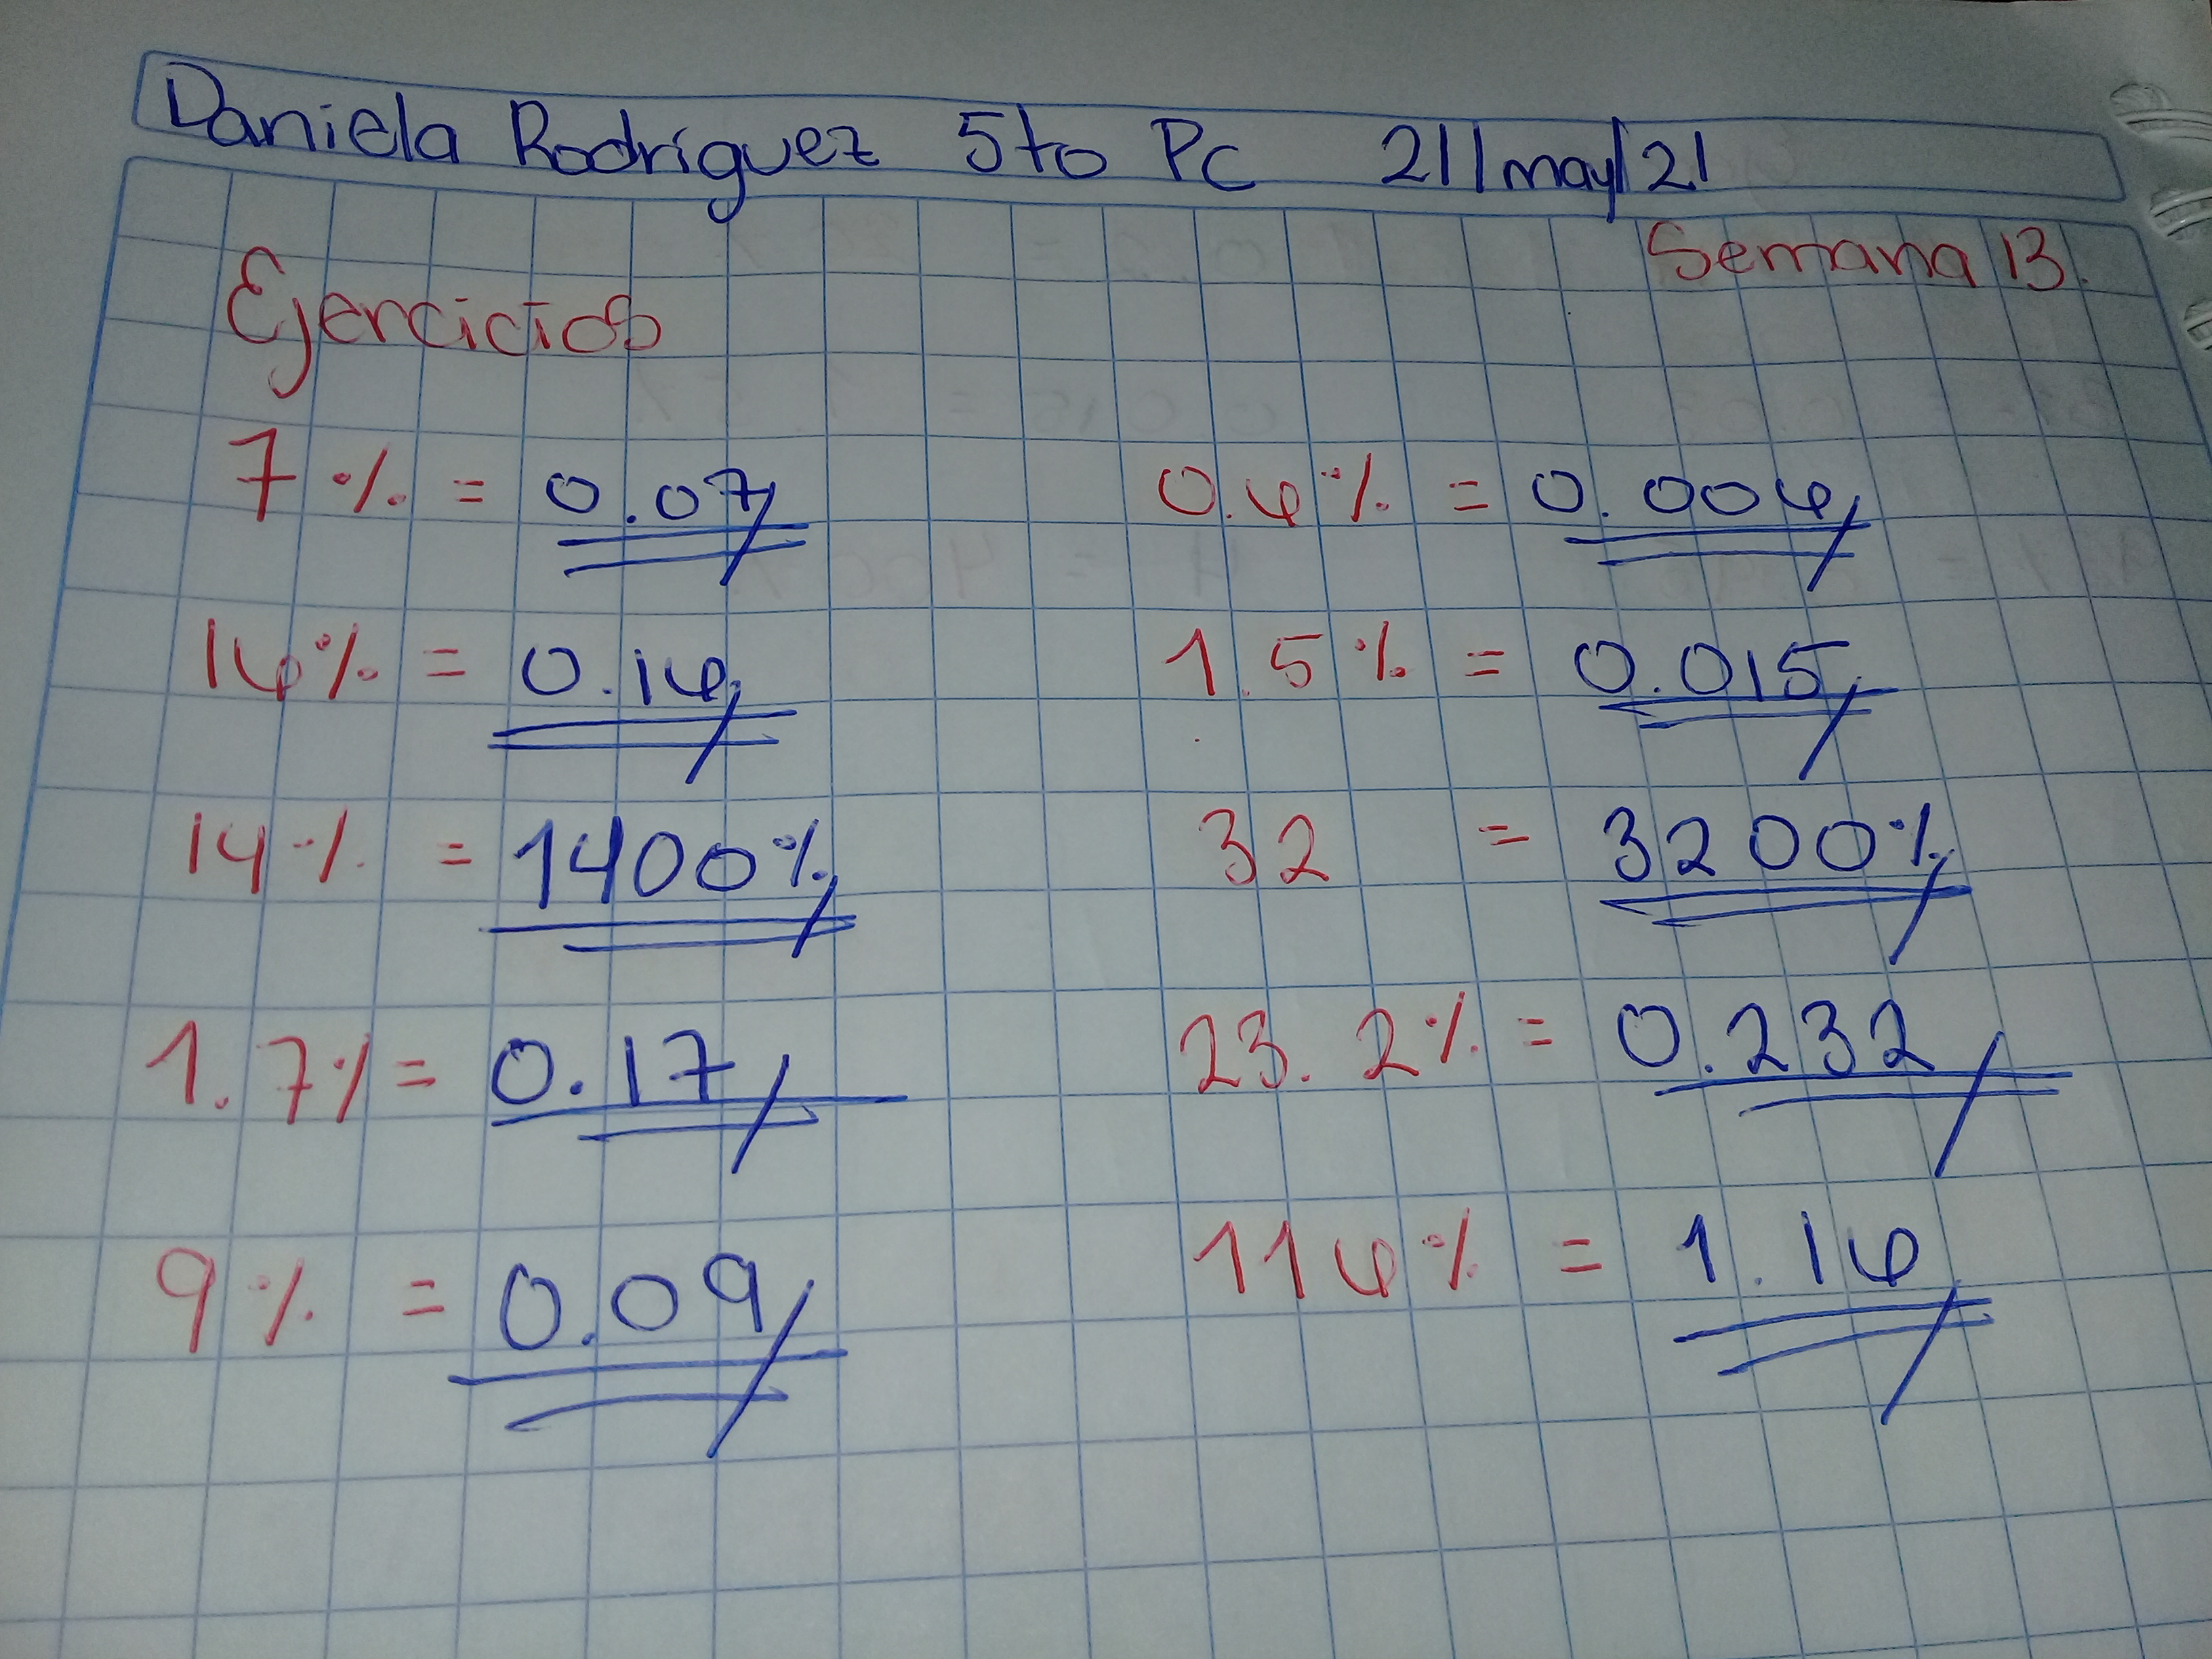 Daniela Rodríguez 5to Pc 21/may/21
Semana 13.
Ejercicios
7% = 0.07 0.6% = 0.006
16% = 0.16 1.5% = 0.015
14% = 1400% 32 = 3200%
1.7% = 0.17 23.2% = 0.232
9% = 0.09 116% = 1.16